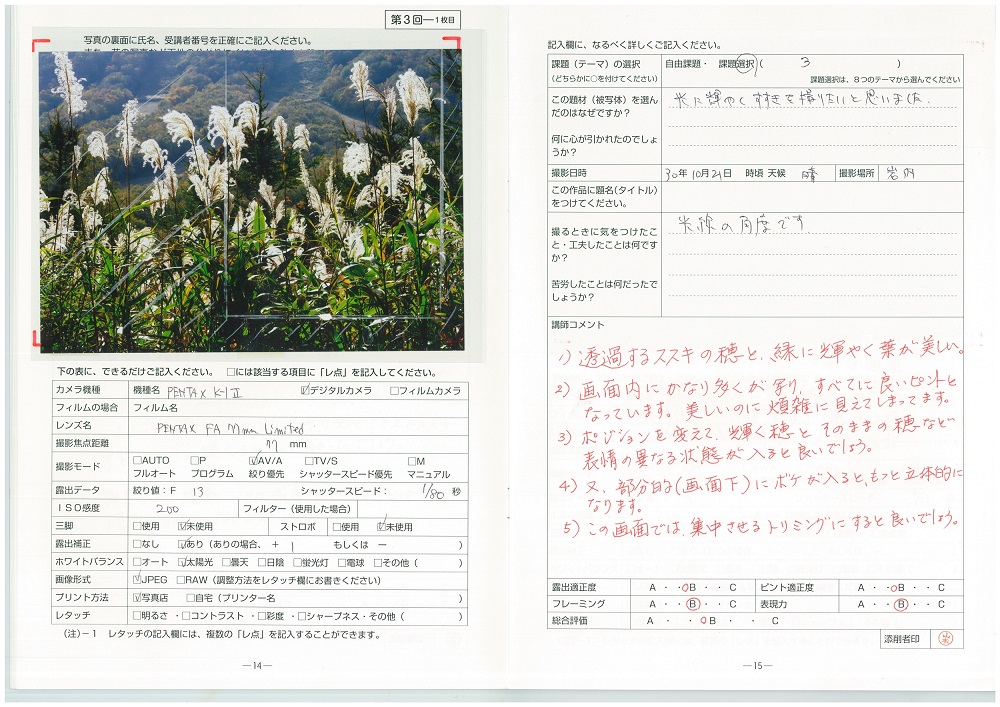 第3回―1枚目
写真の裏面に氏名、受講者番号を正確にご記入ください。
下の表に、できるだけご記入ください。 □には該当する項目に「レ点」を記入してください。
カメラ機種 機種名 PENTAX K-1 Ⅱ ☑デジタルカメラ □フィルムカメラ
フィルムの場合 フィルム名
レンズ名 PENTAX FA 77mm Limited
撮影焦点距離 77 mm
撮影モード □AUTO □P ☑AV/A □TV/S □M
フルオート プログラム 絞り優先 シャッタースピード優先 マニュアル
露出データ 絞り値：F 13 シャッタースピード： 1/80 秒
ISO感度 200 フィルター（使用した場合）
三脚 □使用 ☑未使用 ストロボ □使用 ☑未使用
露出補正 □なし ☑あり（ありの場合、 ＋ 1 もしくは － ）
ホワイトバランス □オート ☑太陽光 □曇天 □日陰 □蛍光灯 □電球 □その他（ ）
画像形式 ☑JPEG □RAW（調整方法をレタッチ欄にお書きください）
プリント方法 ☑写真店 □自宅（プリンター名 ）
レタッチ □明るさ・□コントラスト・□彩度・□シャープネス・その他（ ）
（注）－1 レタッチの記入欄には、複数の「レ点」を記入することができます。
―14―
記入欄に、なるべく詳しくご記入ください。
課題（テーマ）の選択 自由課題・ 課題選択（ 3 ）
（どちらかに○を付けてください） 課題選択は、8つのテーマから選んでください
この題材（被写体）を選ん 光に輝やくすすきを撮りたいと思いました.
だのはなぜですか？
何に心が引かれたのでしょ
うか？
撮影日時 30年10月21日 時頃 天候 晴 撮影場所
この作品に題名（タイトル）
をつけてください。
撮るときに気をつけたこ 光線の角度です
と・工夫したことは何です
か？
苦労したことは何だったで
しょうか？
講師コメント
1) 透過するススキの穂と、緑に輝やく葉が美しい。
2) 画面内にかなり多くが写り、すべてに良いピントと
なっています。美しいのに煩雑に見えてしまってます。
3) ポジションを変えて、輝く穂とそのままの穂など
表情の異なる状態が入ると良いでしょう。
4) 又、部分的(画面下)にボケが入ると、もっと立体的に
なります。
5) この画面では、集中させるトリミングにすると良いでしょう。
露出適正度 A・・B・・C ピント適正度 A・・B・・C
フレーミング A・・B・・C 表現力 A・・B・・C
総合評価 A・・B・・C
添削者印
―15―